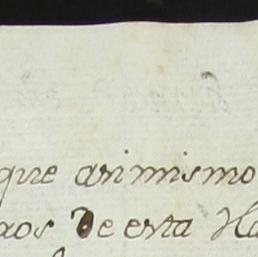 que asimismo
aos de esta Ha